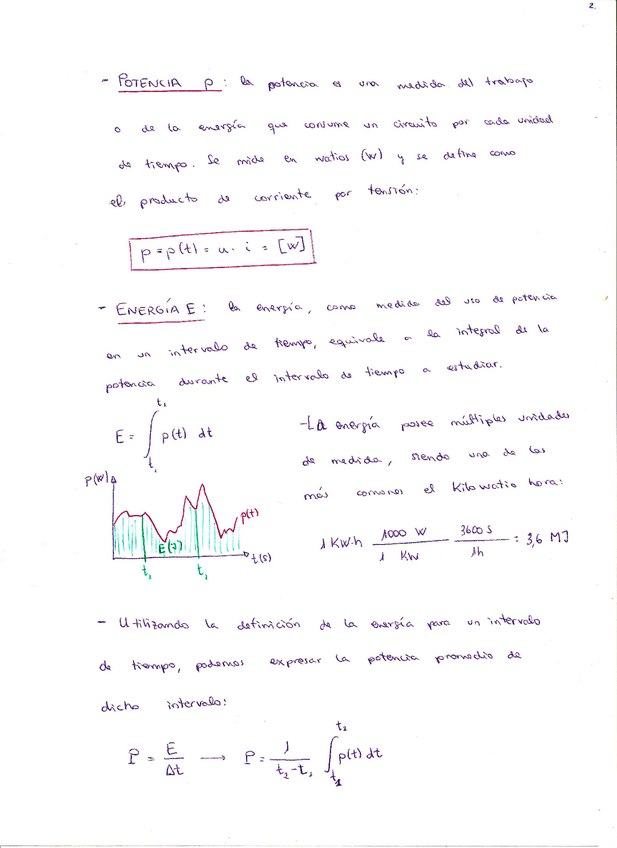 2.
- POTENCIA p : la potencia es una medida del trabajo
o de la energía que consume un circuito por cada unidad
de tiempo. Se mide en watios (W) y se define como
el producto de corriente por tensión:
p = p(t) = u · i = [W]
- ENERGÍA E : la energía, como medida del uso de potencia
en un intervalo de tiempo, equivale a la integral de la
potencia durante el intervalo de tiempo a estudiar.
E = ∫ t₁ t₂ p(t) dt
- La energía posee múltiples unidades
de medida, siendo una de las
más comunes el Kilowatio hora:
1 KW·h 1000 W / 1 KW 3600 S / 1h = 3,6 MJ
P(W)
p(t)
E(J)
t(s)
t₁ t₂
- Utilizando la definición de la energía para un intervalo
de tiempo, podemos expresar la potencia promedio de
dicho intervalo:
P = E / Δt → P = 1 / t₂-t₁ ∫ t₁ t₂ p(t) dt